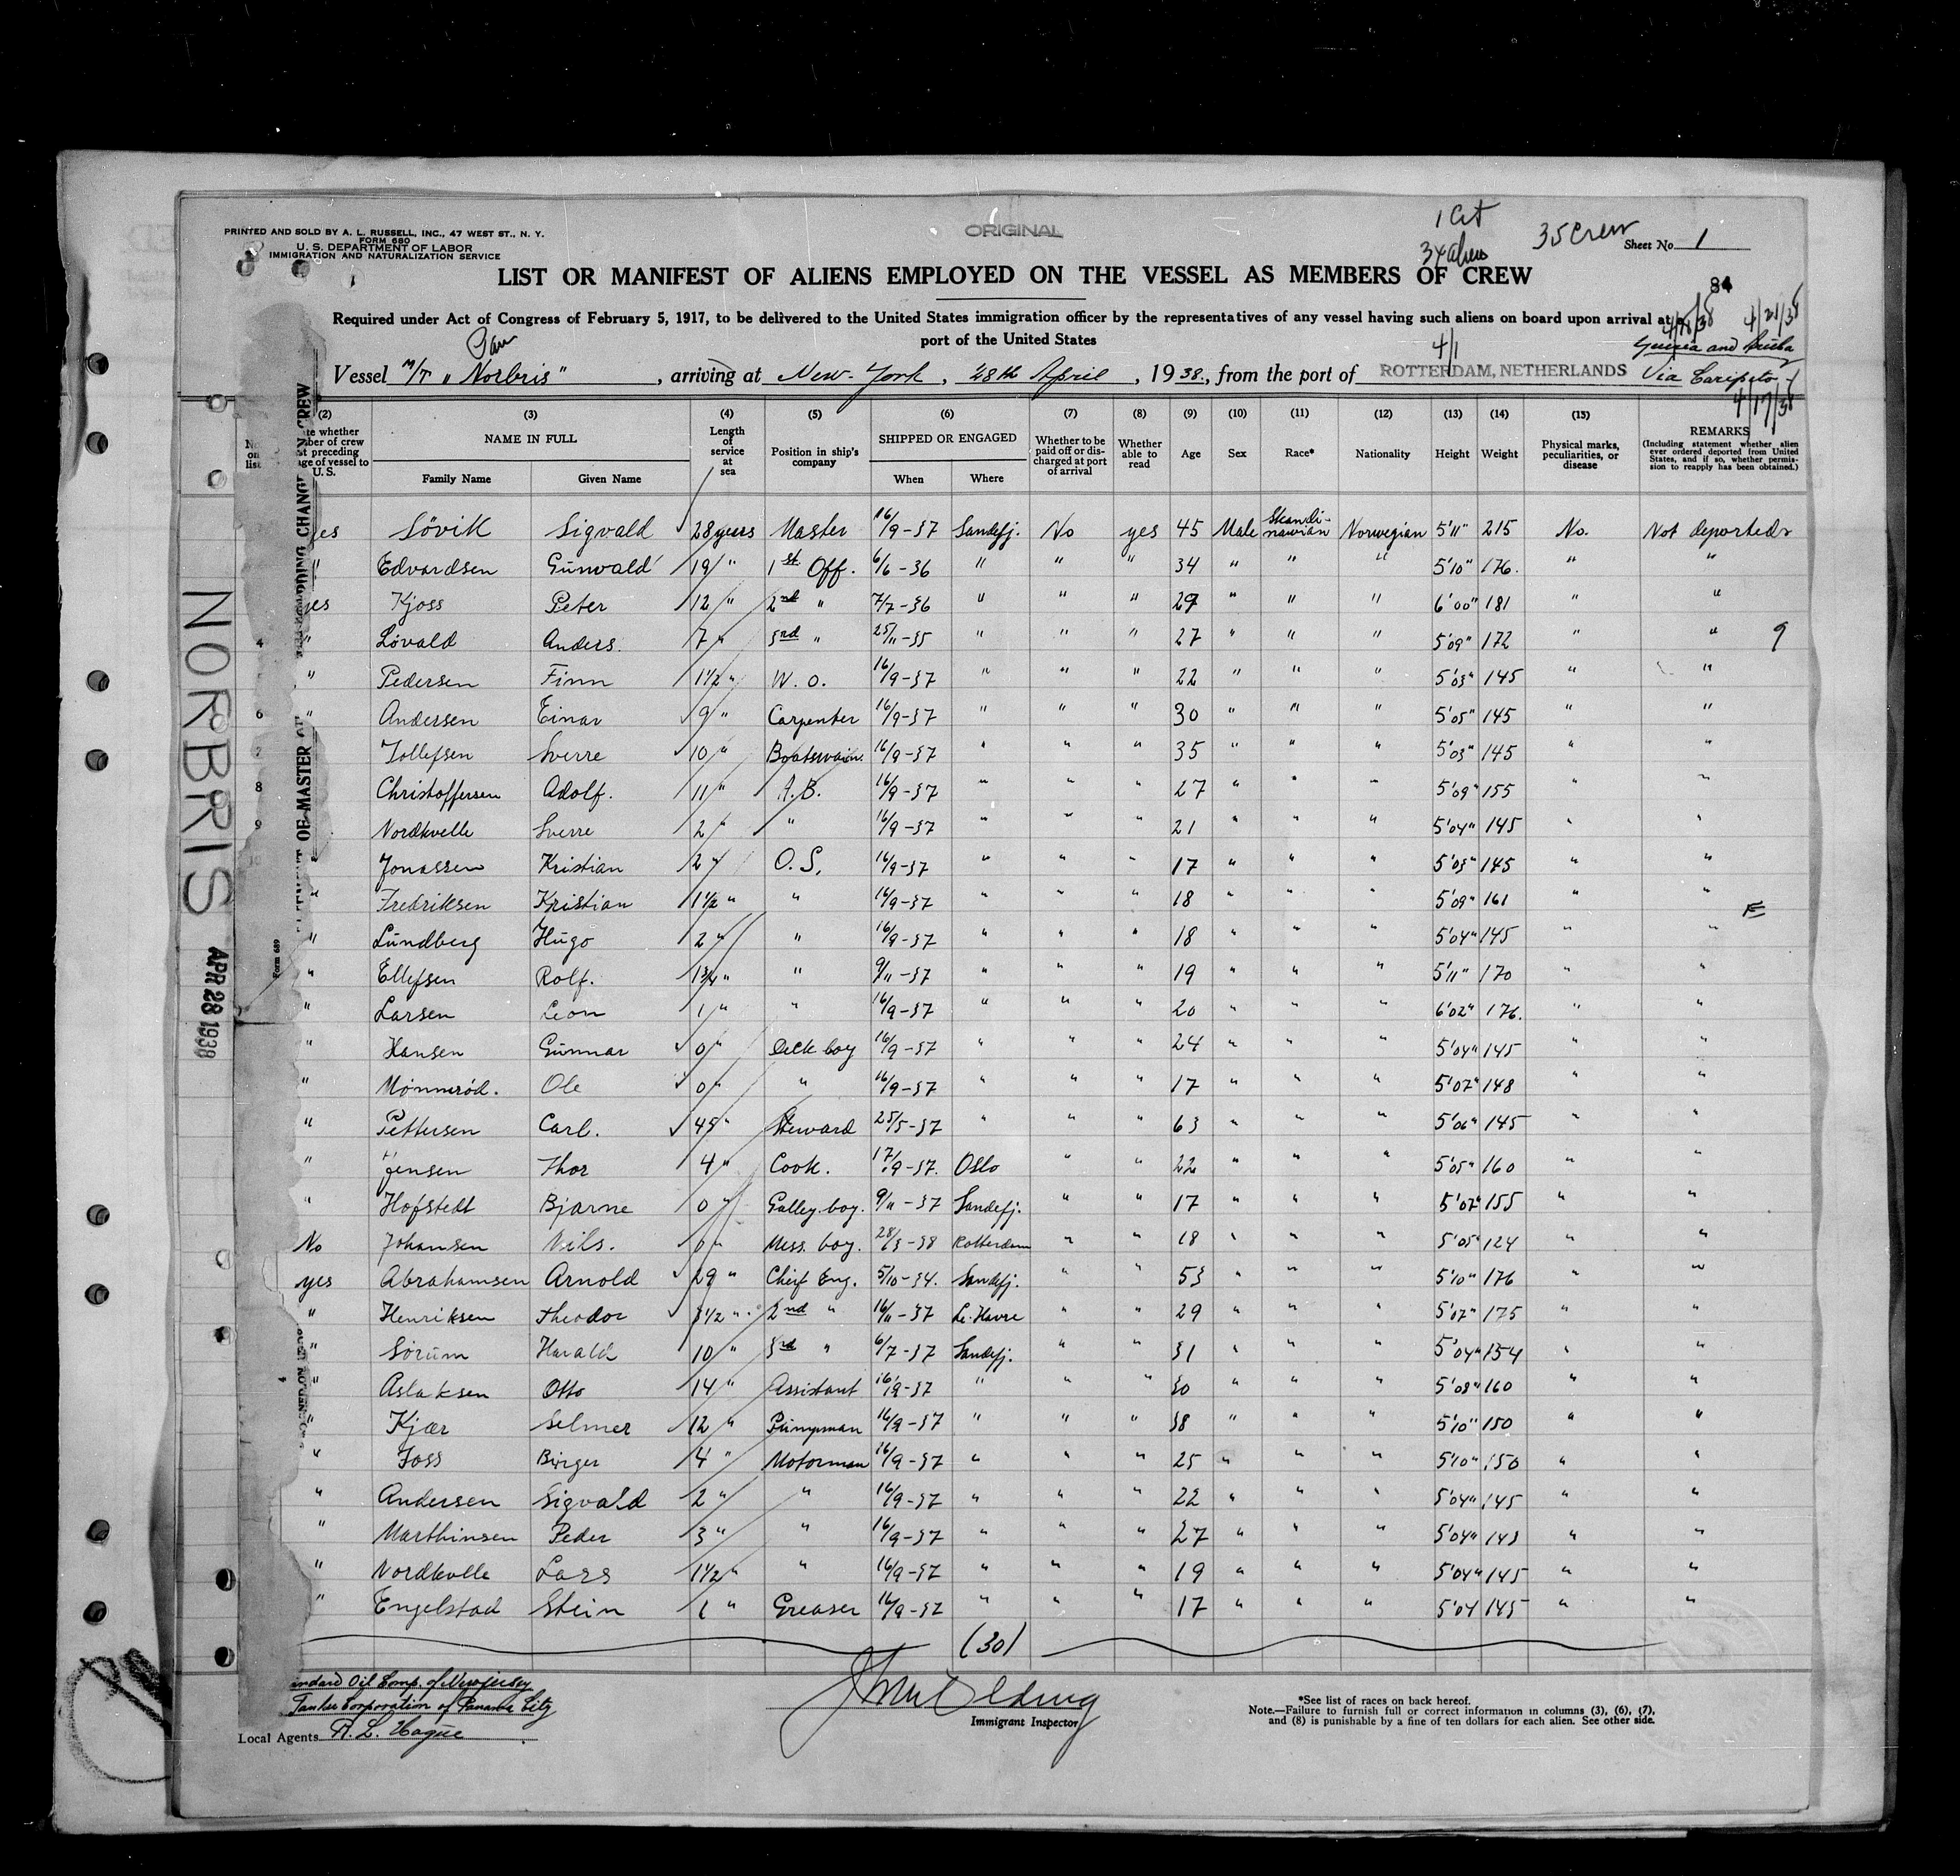 PRINTED AND SOLD BY A. L. RUSSELL, INC., 47 WEST ST., N. Y.
FORM 680
U. S. DEPARTMENT OF LABOR
IMMIGRATION AND NATURALIZATION SERVICE
ORIGINAL
35 Crew
Sheet No. 1
LIST OR MANIFEST OF ALIENS EMPLOYED ON THE VESSEL AS MEMBERS OF CREW
84
Required under Act of Congress of February 5, 1917, to be delivered to the United States immigration officer by the representatives of any vessel having such aliens on board upon arrival at
port of the United States
Pan
4/1
Vessel M/T "Norbris", arriving at New-York, 28th April, 1938, from the port of ROTTERDAM, NETHERLANDS Via Caripito
4/17/38
(2) (3) (4) (5) (6) (7) (8) (9) (10) (11) (12) (13) (14) (15)
NAME IN FULL
Family Name Given Name
Length of service at sea
Position in ship's company
SHIPPED OR ENGAGED
When Where
Whether to be paid off or discharged at port of arrival
Whether able to read
Age Sex Race* Nationality Height Weight
Physical marks, peculiarities, or disease
REMARKS
(Including statement whether alien ever ordered deported from United States, and if so, whether permission to reapply has been obtained.)
yes Sövik Sigvald 28 years Master 16/9-37 Sandefj. No yes 45 Male Skandinavian Norwegian 5'11" 215 No. Not deported
" Edvardsen Gunvald 19 " 1st Off. 6/6-36 " " " 34 " " " 5'10" 176. " "
yes Kjoss Peter 12 " 2nd " 7/7-36 " " " 29 " " " 6'00" 181 " "
4 " Lövald Anders. 7 " 3rd " 25/11-35 " " " 27 " " " 5'09" 172 " " 9
" Pedersen Finn 1 1/2 " W. O. 16/9-37 " " " 22 " " " 5'03" 145 " "
6 " Andersen Einar 9 " Carpenter 16/9-37 " " " 30 " " " 5'05" 145 " "
7 Tollefsen Sverre 10 " Boatswain. 16/9-37 " " " 35 " " " 5'03" 145 " "
8 Christoffersen Adolf. 11 " A.B. 16/9-37 " " " 27 " " " 5'09" 155 " "
9 Nordkvelle Sverre 2 " " 16/9-37 " " " 21 " " " 5'04" 145 " "
Jonassen Kristian 2 " O.S. 16/9-37 " " " 17 " " " 5'03" 145 " "
" Fredriksen Kristian 1 1/2 " " 16/9-37 " " " 18 " " " 5'09" 161 " "
" Lundberg Hugo 2 " " 16/9-37 " " " 18 " " " 5'04" 145 " "
" Ellefsen Rolf. 1 3/4 " " 9/11-37 " " " 19 " " " 5'11" 170 " "
" Larsen Leon 1 " " 16/9-37 " " " 20 " " " 6'02" 176. " "
" Hansen Gunnar 0 " Deck boy 16/9-37 " " " 24 " " " 5'04" 145 " "
" Mønnerød. Ole 0 " " 16/9-37 " " " 17 " " " 5'07" 148 " "
" Pettersen Carl. 45 " Steward 25/5-37 " " " 63 " " " 5'06" 145 " "
" Jensen Thor 4 " Cook. 17/9-37. Oslo " " 22 " " " 5'05" 160 " "
" Hofstedt Bjarne 0 " Galley boy. 9/11-37 Sandefj. " " 17 " " " 5'07" 155 " "
No Johansen Nils. 0 " Mess. boy. 28/3-38 Rotterdam " " 18 " " " 5'05" 124 " "
yes Abrahamsen Arnold 29 " Chief Eng. 5/10-34. Sandefj. " " 53 " " " 5'10" 176 " "
" Henriksen Theodor 8 1/2 " 2nd " 16/11-37 Le-Havre " " 29 " " " 5'07" 175 " "
" Sørum Harald 10 " 3rd " 6/7-37 Sandefj. " " 31 " " " 5'04" 154 " "
" Aslaksen Otto 14 " Assistant 16/9-37 " " " 30 " " " 5'08" 160 " "
" Kjær Selmer 12 " Pumpman 16/9-37 " " " 38 " " " 5'10" 150 " "
" Foss Birger 4 " Motorman 16/9-37 " " " 25 " " " 5'10" 150 " "
" Andersen Sigvald 2 " " 16/9-37 " " " 22 " " " 5'04" 145 " "
" Marthinsen Peder 3 " " 16/9-37 " " " 27 " " " 5'04" 143 " "
" Nordkvelle Lars 1 1/2 " " 16/9-37 " " " 19 " " " 5'04" 145 " "
" Engelstad Stein 1 " Greaser 16/9-37 " " " 17 " " " 5'04 145 " "
(30)
NORBRIS
APR 28 1938
Form 689
ndard Oil Comp. of New jersey
Tanker Corporation of Panama City
Local Agents
Immigrant Inspector
*See list of races on back hereof.
Note.—Failure to furnish full or correct information in columns (3), (6), (7),
and (8) is punishable by a fine of ten dollars for each alien. See other side.